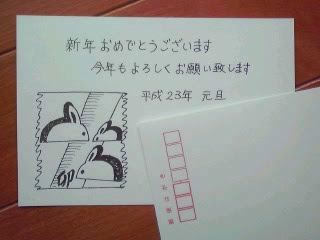 新年おめでとうございます
今年もよろしくお願い致します
平成23年 元旦
卯
郵便はがき